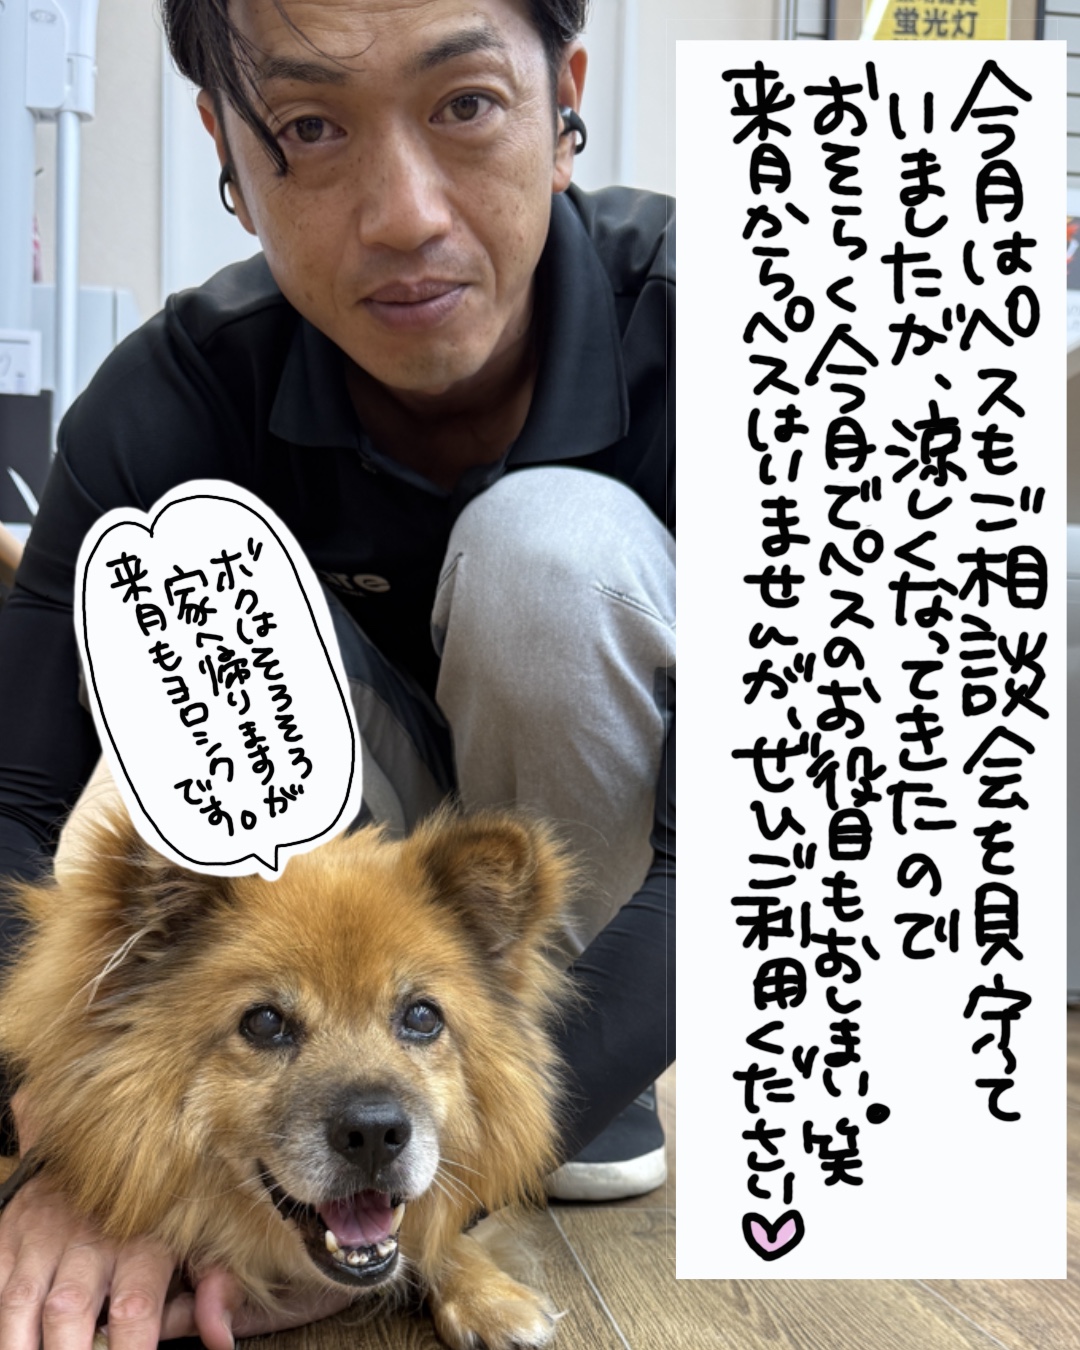 蛍光灯
今月はペスもご相談会を見守って
いましたが、涼しくなってきたので
おそらく今月でペスのお役目もおしまい。笑
来月からペスはいませんが、ぜひご利用ください
ボクはそろそろ
家へ帰りますが
来月もヨロシク
です。